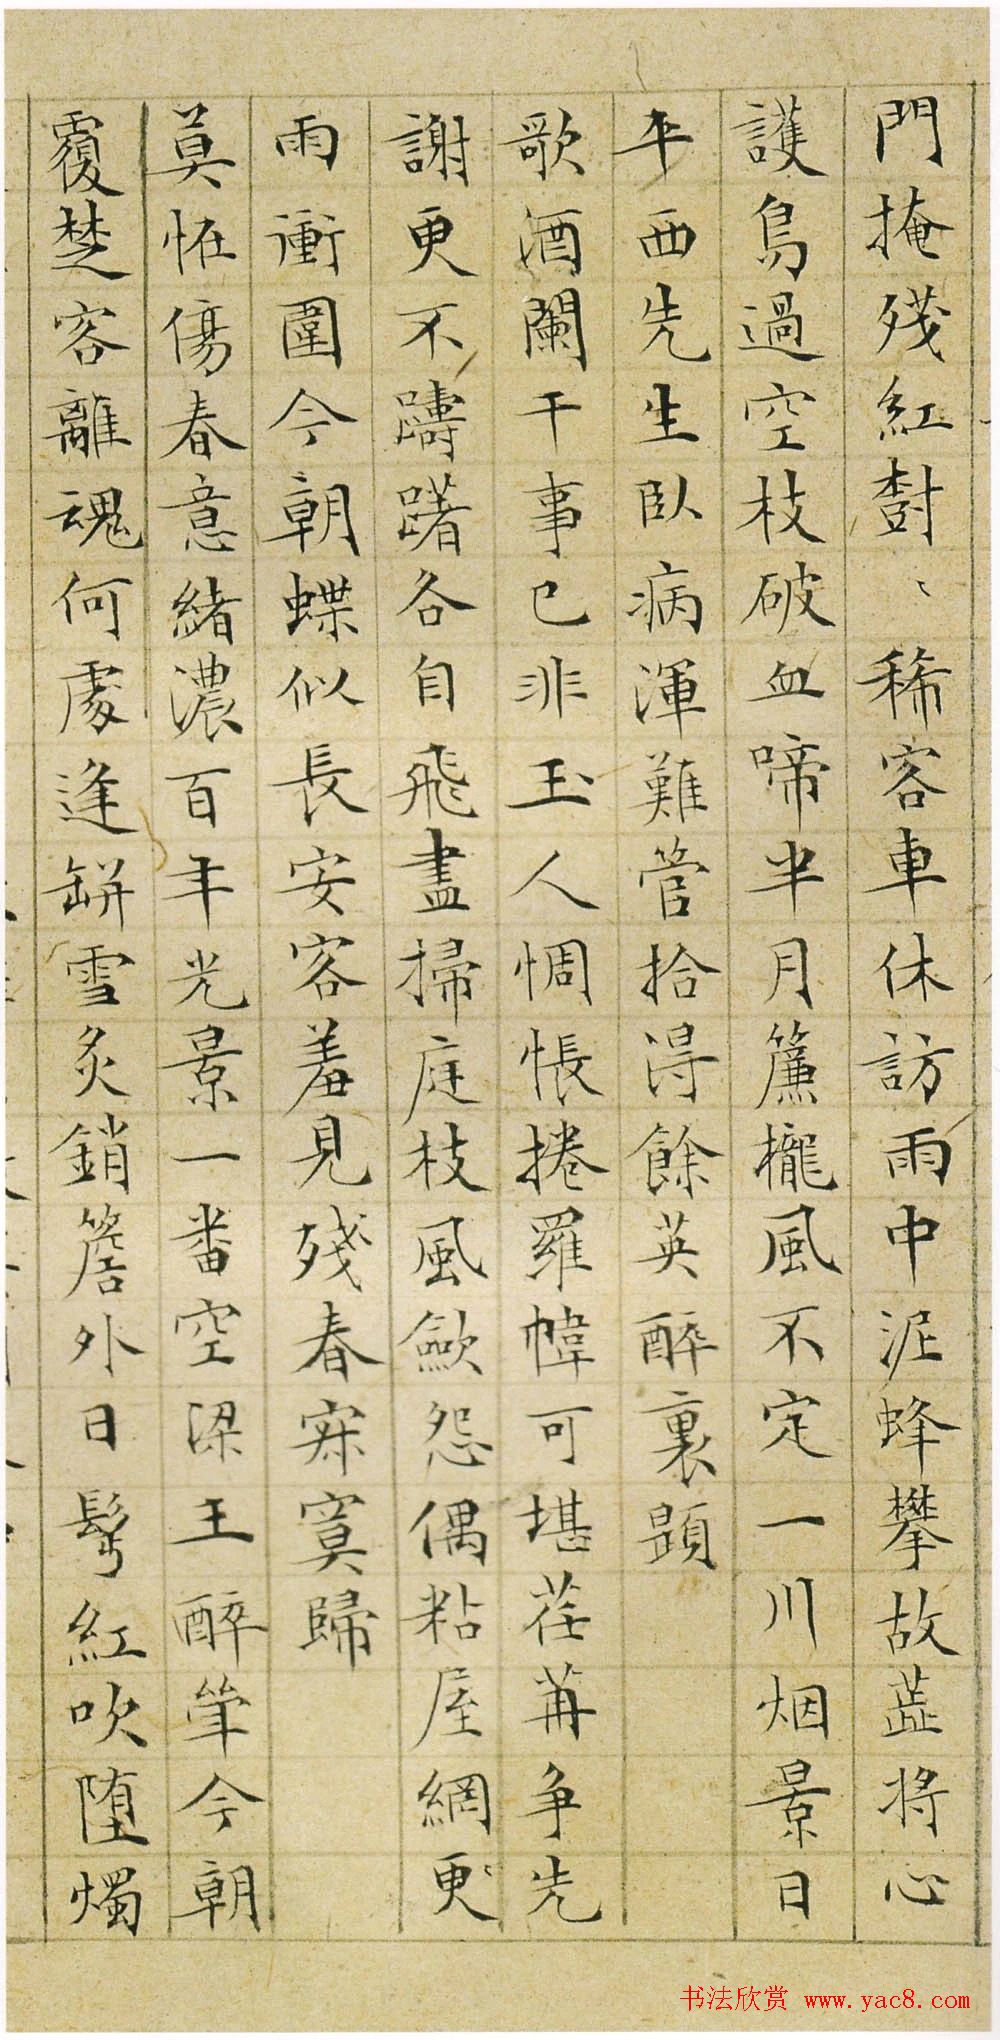 門掩殘紅樹〻稀客車休訪雨中泥蜂攀故蕋將心
護鳥過空枝破血啼半月簾櫳風不定一川烟景日
平西先生臥病渾難管拾得餘英醉裏題
歌酒闌干事已非玉人惆悵捲羅幃可堪荏苒爭先
謝更不躊躇各自飛盡掃庭枝風歛怨偶粘屋網更
雨衝圍今朝蝶似長安客羞見殘春寂寞歸
莫恠傷春意緒濃百年光景一番空梁王醉笔今朝
覆楚客離魂何處逢缾雪炙銷簷外日髩紅吹墮燭
书法欣赏 www.yac8.com